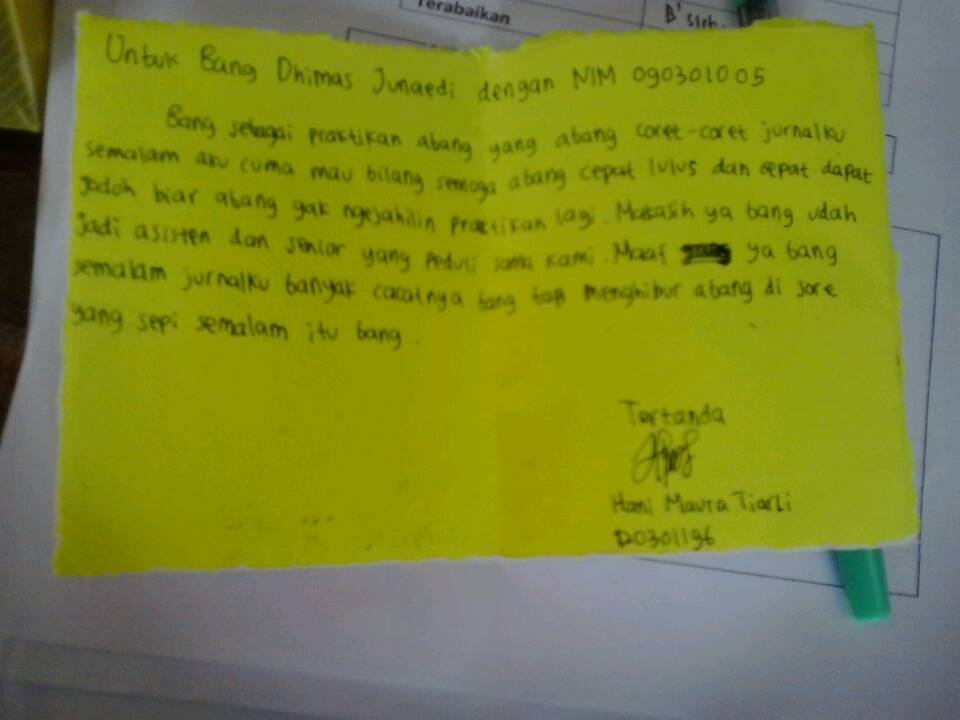 Terabaikan
Untuk Bang Dhimas Junaedi dengan NIM 090301005
Bang sebagai praktikan abang yang abang coret-coret jurnalku
semalam aku cuma mau bilang semoga abang cepat lulus dan cepat dapat
jodoh biar abang gak ngejahilin praktikan lagi. Makasih ya bang udah
jadi asisten dan senior yang peduli sama kami. Maaf ya bang
semalam jurnalku banyak cacatnya bang tapi menghibur abang di sore
yang sepi semalam itu bang.
Tertanda
Hani Maura Tiarli
120301196